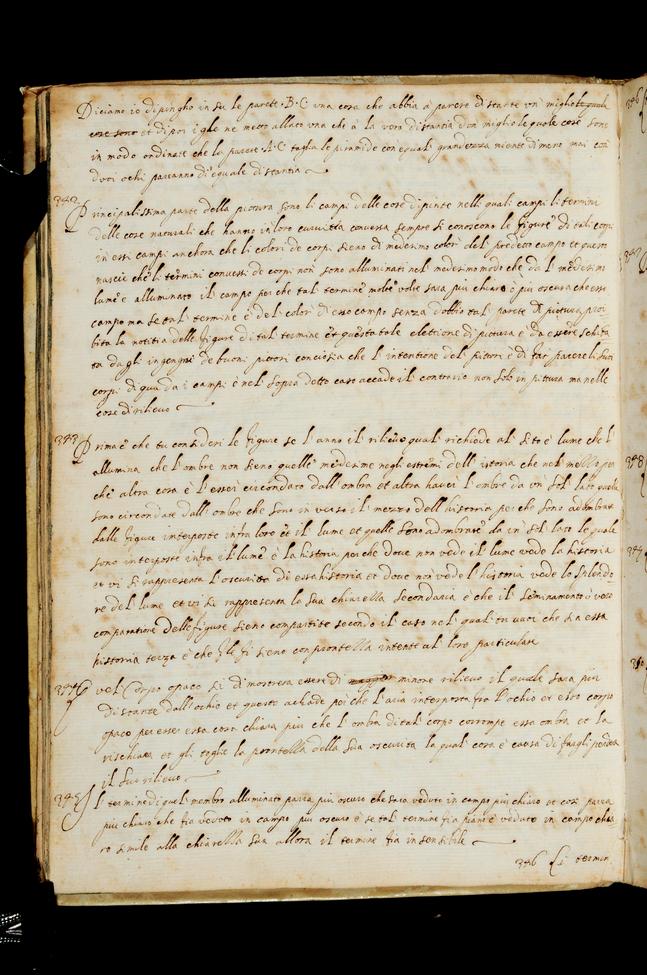 Diciamo io dipingho in su le parete .B.C una cosa che abbia a parere distante un miglio le quale
cose sono et dipoi i ghe ne metto allato una che à la vera distantia d'un miglio le quale cose sono
in modo ordinate che la parete .A.C. taglia le piramide con equali grandezza niente di meno mai con
dvoi ochi parranno di equale distantia
342
Principalissima parte della pictura sono li campi delle cose dipinte nelli quali campi li termini
delle cose naturali che hanno in loro curvità convessa sempre si conoscono le figure di tali corpi
in essi campi anchora che li colori de corpi sieno di medesimo color del predetto campo et questo
nascie che li termini convessi de corpi non sono alluminati nel medesimo modo che da l medesimo
lume è alluminato il campo perche tal termine molte volte sara più chiaro è più oscuro che esso
campo ma se tal termine è del color di esso campo senza dobbio tal parete di pictura proi
bita la notitia delle figure di tal termine et questa tale elettione di pictura è da essere schifa
ta dagli ingegni de buoni pittori conciosia che l intentione del pittore è di far parere li suoi
corpi di qua da i campi è nel sopra detto caso accade il contrario non solo in pittura ma nelle
cose di rilievo
343
Prima è che tu consideri le figure se l'anno il rilievo qual richiede al sito è lume che l'
allumina che l'ombre non sieno quelle medesime negli estremi dell'istoria che nel mezzo per
che altra cosa è l'esser circondato dall'ombra et altra haver l'ombre da un sol lato quelle
sono circondate dall'ombre che sono in verso il mezzo dell'historia perche sono adombrate
dalle figure interposte infra loro et il lume et quelle sono adombrate da un sol lato le quale
sono interposte infra il lume è la historia perche dove non vede il lume vede la historia
et vi si rappresenta l'oscurità di essa historia et dove non vede l'historia vede lo splendo
re del lume et vi si rappresenta la sua chiarezza secondaria è che il seminamento o vero
comparatione delle figure sieno compartite secondo il caso nel qual tu vuoi che sia essa
historia terza è che gli si sieno con prontezza intente al loro particulare
344
Quel Corpo opaco si dimostrera essere di minore rilievo il quale sara più
distante dall'ochio et questo achade perche l'aria interposta fra l'ochio et esso corpo
opaco per essere essa cosa chiara più che l'ombra di tal corpo corrompe essa ombra et la
rischiara et gli toglie la prontezza della sua oscurità la qual cosa è causa di fargli perdere
il suo rilievo
345
Il termine di quel membro alluminato parra più oscuro che sara veduto in campo più chiaro et così parra
più chiaro che fia veduto in campo più oscuro è se tal termine fia piano è veduto in campo chia
ro simile alla chiarezza sua allora il termine fia insensibile
346 Li termin